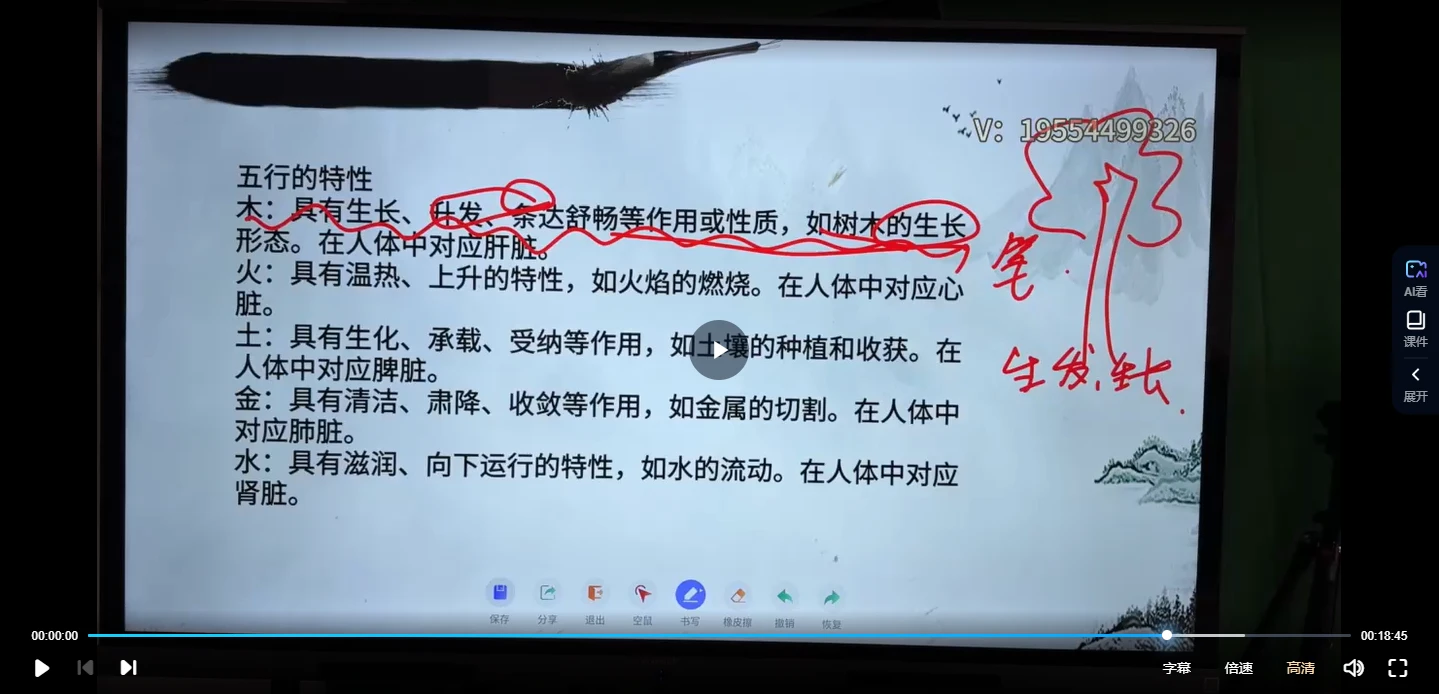 V：19554499326
五行的特性
木：具有生长、升发、条达舒畅等作用或性质，如树木的生长
形态。在人体中对应肝脏。
火：具有温热、上升的特性，如火焰的燃烧。在人体中对应心
脏。
土：具有生化、承载、受纳等作用，如土壤的种植和收获。在
人体中对应脾脏。
金：具有清洁、肃降、收敛等作用，如金属的切割。在人体中
对应肺脏。
水：具有滋润、向下运行的特性，如水的流动。在人体中对应
肾脏。
生发、生长.
保存 分享 退出 空鼠 书写 橡皮擦 撤销 恢复
AI看
课件
展开
00:00:00 00:18:45
字幕 倍速 高清